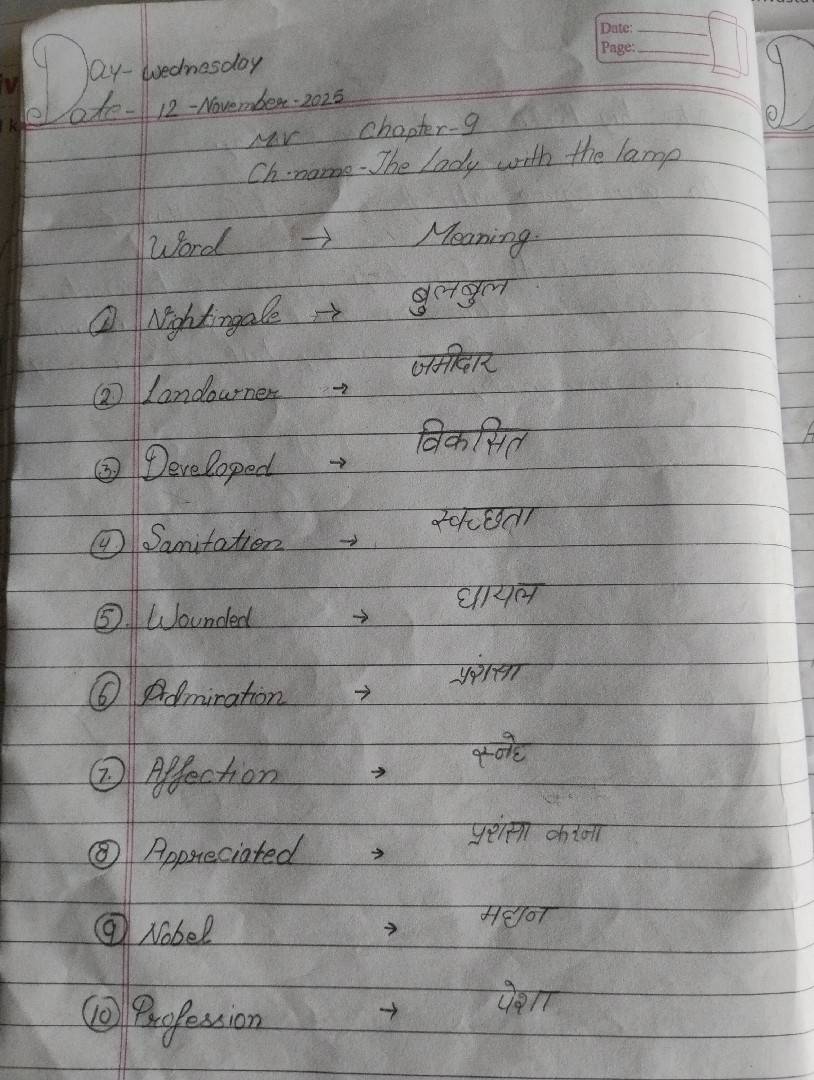 Date:
Page:
Day- Wednesday
Date- 12-November-2025
Chapter-9
Ch-name-The Lady with the lamp
Word → Meaning.
① Nightingale → बुलबुल
② Landowner → जमीदार
③ Developed → विकसित
④ Sanitation → स्वच्छता
⑤. Wounded → घायल
⑥ Admiration → प्रशंसा
⑦ Affection → स्नेह
⑧ Appreciated → प्रशंसा करना
⑨ Nobel → महान
⑩ Profession → पेशा